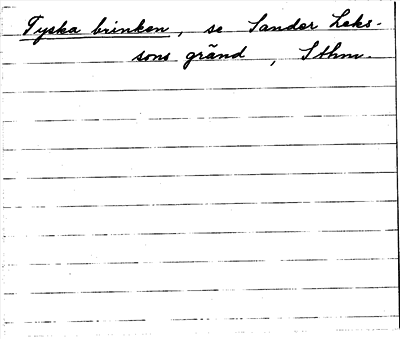 Tyska brinken, se Sander Leks-
sons gränd, Sthm.